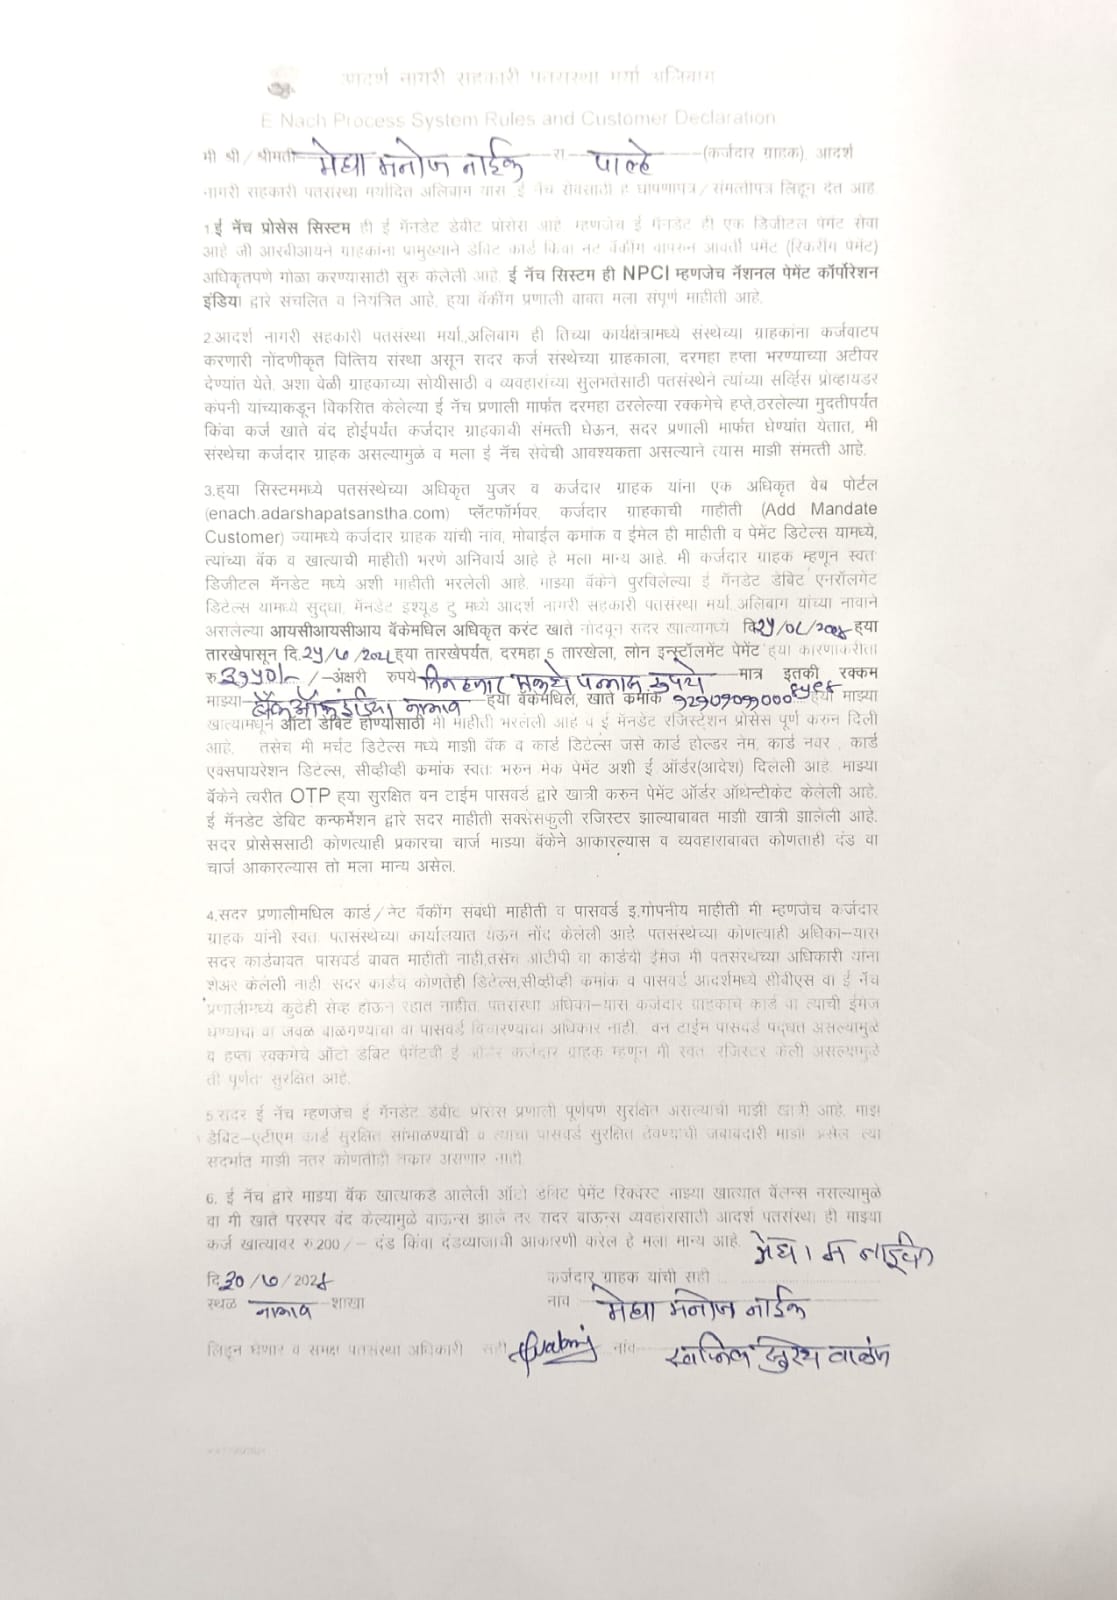 आदर्श नागरी सहकारी पतसंस्था मर्या अलिबाग
E Nach Process System Rules and Customer Declaration
मी श्री / श्रीमती मेघा मनोज नाईक रा पाल्हे (कर्जदार ग्राहक), आदर्श
नागरी सहकारी पतसंस्था मर्यादित अलिबाग यास ई नॅच सेवेसाठी हे घोषणापत्र / संमत्तीपत्र लिहून देत आहे.
1.ई नॅच प्रोसेस सिस्टिम ही ई मॅनडेट डेबीट प्रोसेस आहे म्हणजेच ई मॅनडेट ही एक डिजीटल पेमेंट सेवा
आहे जी आरबीआयने ग्राहकांना प्रामुख्याने डेबिट कार्ड किंवा नेट बँकींग वापरुन आवर्ती पेमेंट (रिकरींग पेमेंट)
अधिकृतपणे गोळा करण्यासाठी सुरु केलेली आहे. ई नॅच सिस्टिम ही NPCI म्हणजेच नॅशनल पेमेंट कॉर्पोरेशन
इंडिया द्वारे संचलित व नियंत्रित आहे, हया बँकींग प्रणाली बाबत मला संपूर्ण माहीती आहे.
2.आदर्श नागरी सहकारी पतसंस्था मर्या.,अलिबाग ही तिच्या कार्यक्षेत्रामध्ये संस्थेच्या ग्राहकांना कर्जवाटप
करणारी नोंदणीकृत वित्तिय संस्था असून सदर कर्ज संस्थेच्या ग्राहकाला, दरमहा हप्ता भरण्याच्या अटीवर
देण्यांत येते. अशा वेळी ग्राहकाच्या सोयीसाठी व व्यवहारांच्या सुलभतेसाठी पतसंस्थेने त्यांच्या सर्व्हिस प्रोव्हायडर
कंपनी यांच्याकडून विकसित केलेल्या ई नॅच प्रणाली मार्फत दरमहा ठरलेल्या रक्कमेचे हप्ते,ठरलेल्या मुदतीपर्यंत
किंवा कर्ज खाते बंद होईपर्यंत कर्जदार ग्राहकाची संमत्ती घेऊन, सदर प्रणाली मार्फत घेण्यांत येतात, मी
संस्थेचा कर्जदार ग्राहक असल्यामुळे व मला ई नॅच सेवेची आवश्यकता असल्याने त्यास माझी संमत्ती आहे.
3.हया सिस्टिममध्ये पतसंस्थेच्या अधिकृत युजर व कर्जदार ग्राहक यांना एक अधिकृत वेब पोर्टल
(enach.adarshapatsanstha.com) प्लॅटफॉर्मवर, कर्जदार ग्राहकाची माहीती (Add Mandate
Customer) ज्यामध्ये कर्जदार ग्राहक यांची नांव, मोबाईल कमांक व ईमेल ही माहीती व पेमेंट डिटेल्स यामध्ये,
त्यांच्या बँक व खात्याची माहीती भरणे अनिवार्य आहे हे मला मान्य आहे. मी कर्जदार ग्राहक म्हणून स्वतः
डिजीटल मॅनडेट मध्ये अशी माहीती भरलेली आहे. माझ्या बँकेने पुरविलेल्या ई मॅनडेट डेबिट एनरॉलमेंट
डिटेल्स यामध्ये सुद्धा, मॅनडेट इश्यूड टु मध्ये आदर्श नागरी सहकारी पतसंस्था मर्या.,अलिबाग यांच्या नावाने
असलेल्या आयसीआयसीआय बँकेमधिल अधिकृत करंट खाते नोंदवून सदर खात्यामध्ये दि २५/०८/२०२४ हया
तारखेपासून दि.२५/७/२०२८ हया तारखेपर्यंत, दरमहा 5 तारखेला, लोन इन्स्टॉलमेंट पेमेंट हया कारणाकरीता
रु. /-अंक्षरी रुपये तिन हजार पन्नास रुपये मात्र इतकी रक्कम
माझ्या बँक ऑफ इंडिया नागाव हया बँकेमधिल, खाते कमांक हया माझ्या
खात्यामधून ऑटो डेबिट होण्यासाठी मी माहीती भरलेली आहे व ई मॅनडेट रजिस्ट्रेशन प्रोसेस पूर्ण करुन दिली
आहे. तसेच मी मर्चंट डिटेल्स मध्ये माझी बँक व कार्ड डिटेल्स जसे कार्ड होल्डर नेम, कार्ड नंबर , कार्ड
एक्सपायरेशन डिटेल्स, सीव्हीव्ही कमांक स्वतः भरुन मेक पेमेंट अशी ई ऑर्डर(आदेश) दिलेली आहे. माझ्या
बँकेने त्वरीत OTP हया सुरक्षित वन टाईम पासवर्ड द्वारे खात्री करुन पेमेंट ऑर्डर ऑथेन्टीकेट केलेली आहे.
ई मॅनडेट डेबिट कन्फर्मेशन द्वारे सदर माहीती सक्सेसफुली रजिस्टर झाल्याबाबत माझी खात्री झालेली आहे.
सदर प्रोसेससाठी कोणत्याही प्रकारचा चार्ज माझ्या बँकेने आकारल्यास व व्यवहाराबाबत कोणताही दंड वा
चार्ज आकारल्यास तो मला मान्य असेल.
4.सदर प्रणालीमधिल कार्ड/नेट बँकींग संबंधी माहीती व पासवर्ड इ.गोपनीय माहीती मी म्हणजेच कर्जदार
ग्राहक यांनी स्वतः पतसंस्थेच्या कार्यालयात येऊन नोंद केलेली आहे पतसंस्थेच्या कोणत्याही अधिका-यास
सदर कार्डबाबत पासवर्ड बाबत माहीती नाही,तसेच ओटीपी वा कार्डची ईमेज मी पतसंस्थेच्या अधिकारी यांना
शेअर केलेली नाही सदर कार्डचे कोणतेही डिटेल्स,सीव्हीव्ही कमांक व पासवर्ड आदर्शमध्ये सीबीएस वा ई नॅच
प्रणालीमध्ये कुठेही सेव्ह होऊन रहात नाहीत. पतसंस्था अधिका-यास कर्जदार ग्राहकाचे कार्ड वा त्याची ईमेज
घेण्याचा वा जवळ बाळगण्याचा वा पासवर्ड विचारण्याचा अधिकार नाही. वन टाईम पासवर्ड पद्धत असल्यामुळे
व हप्ता रक्कमेचे ऑटो डेबिट पेमेंटची ई ऑर्डर कर्जदार ग्राहक म्हणून मी स्वतः रजिस्टर केली असल्यामुळे
ती पूर्णतः सुरक्षित आहे.
5.सदर ई नॅच म्हणजेच ई मॅनडेट डेबीट प्रोसेस प्रणाली पूर्णपणे सुरक्षित असल्याची माझी खात्री आहे. माझे
डेबिट-एटीएम कार्ड सुरक्षित सांभाळण्याची व त्याचा पासवर्ड सुरक्षित ठेवण्याची जबाबदारी माझी असेल त्या
संदर्भात माझी नंतर कोणतीही तकार असणार नाही.
6. ई नॅच द्वारे माझ्या बँक खात्याकडे आलेली ऑटो डेबिट पेमेंट रिक्वेस्ट माझ्या खात्यात बॅलन्स नसल्यामुळे
वा मी खाते परस्पर बंद केल्यामुळे बाऊन्स झाले तर सदर बाऊन्स व्यवहारासाठी आदर्श पतसंस्था ही माझ्या
कर्ज खात्यावर रु.200/- दंड किंवा दंडव्याजाची आकारणी करेल हे मला मान्य आहे.
मेघा म नाईक
दि ३०/७/2024 कर्जदार ग्राहक यांची सही
स्थळ नागाव शाखा नाव मेघा मनोज नाईक
लिहून घेणार व समक्ष पतसंस्था अधिकारी सही नांव